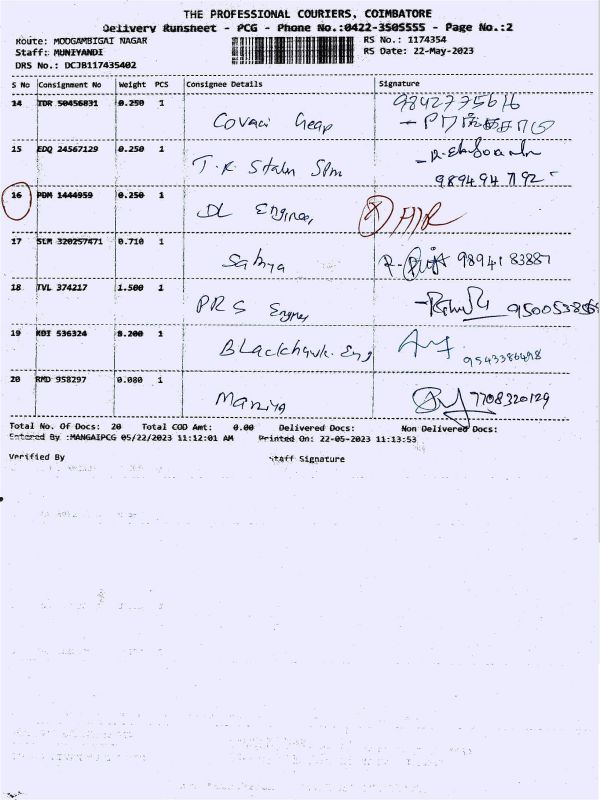 THE PROFESSIONAL COURIERS, COIMBATORE
Delivery Runsheet - PCG - Phone No.:0422-3505555 - Page No.:2
Route: MOOGAMBIGAI NAGAR RS No.: 1174354
Staff: MUNIYANDI RS Date: 22-May-2023
DRS No.: DCJB117435402
S No Consignment No Weight PCS Consignee Details Signature
14 IDR 50456831 0.250 1 9842775616
Covaci
15 EDQ 24567129 0.250 1
T.K Stalin Spm
16 PDM 1444959 0.250 1
DL Engineer
17 SLM 320257471 0.710 1
Sathya 98941 83887
18 TVL 374217 1.500 1
PRS Engineer
19 KDI 536324 8.200 1
Blackhawk. Eng 9543386498
20 RMD 958297 0.080 1
7708320129
Total No. Of Docs: 20 Total COD Amt: 0.00 Delivered Docs: Non Delivered Docs:
Entered By :MANGAIPCG 05/22/2023 11:12:01 AM Printed On: 22-05-2023 11:13:53
Verified By Staff Signature